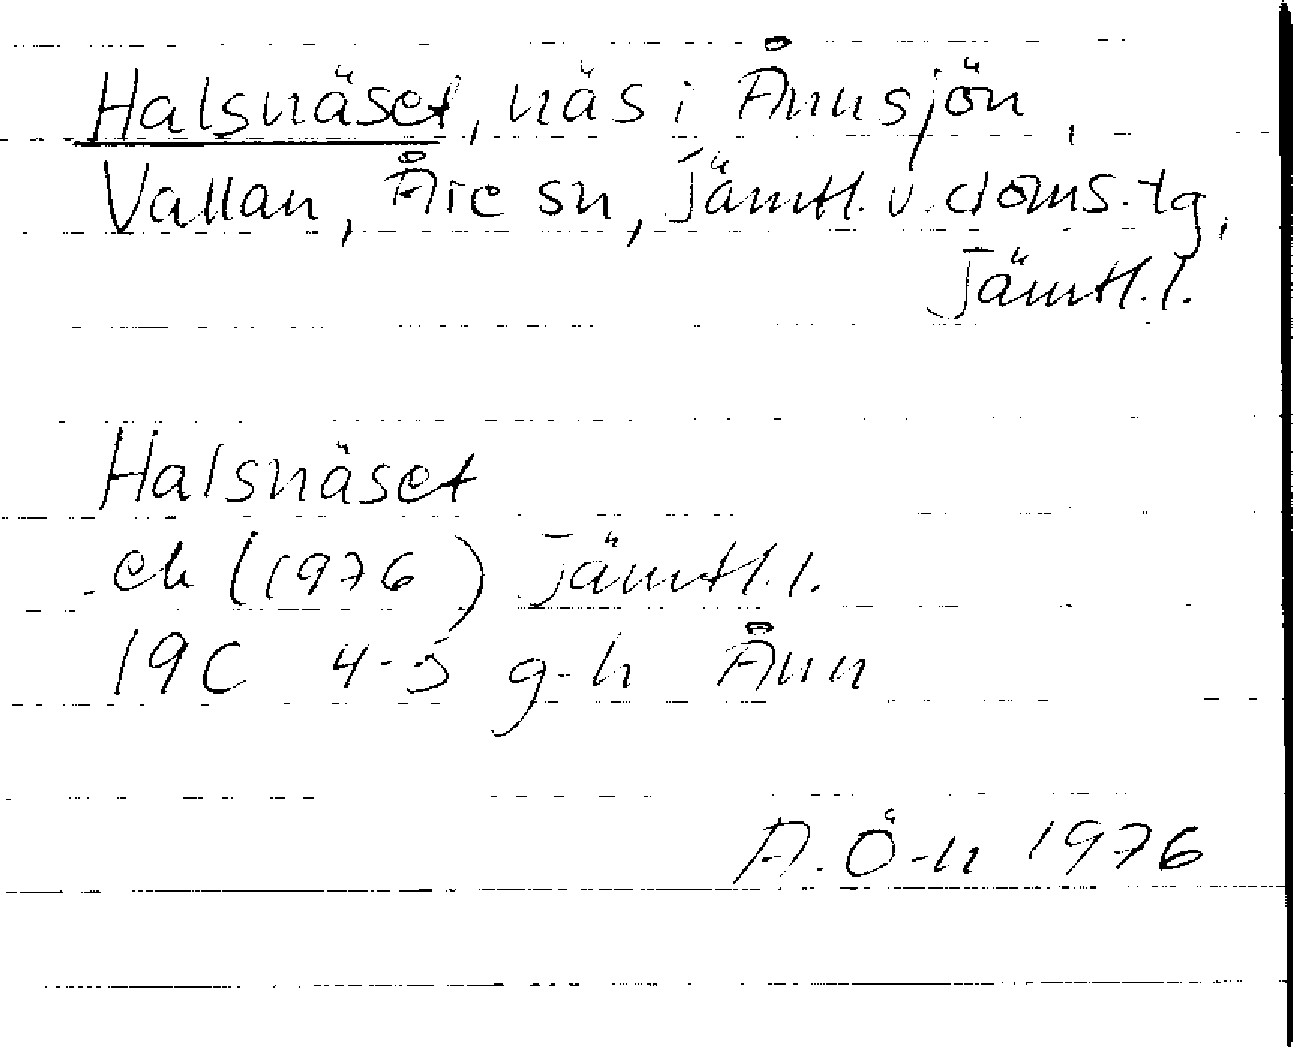 Halsnäset, näs i Ånnsjön,
Vallan, Åre sn, Jämtl. v. doms.tg,
Jämtl.l.
Halsnäset
ek (1976) Jämtl.l.
19C 4-5 g-h Ånn
A.Ö-n 1976